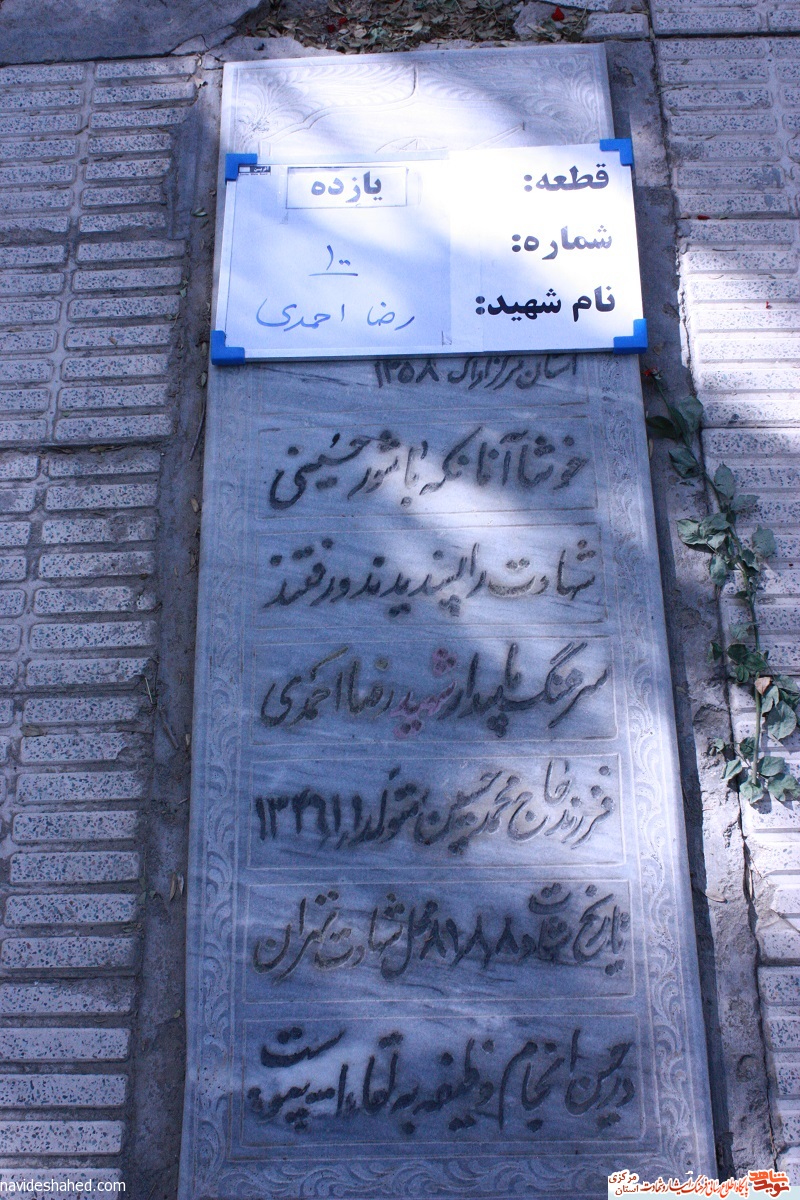 قطعه: یازده
شماره: ۱۰۰
نام شهید: رضا احمدی
استان مرکزی اراک ۱۳۵۸
خوشا آنانکه با شور حسینی
شهادت را پسندیدند و رفتند
سرهنگ پاسدار شهید رضا احمدی
فرزند حاج محمدحسین متولد ۱۳۴۶/۱/۱
تاریخ شهادت ۸۱/۸/۸ محل شهادت تهران
در حین انجام وظیفه به لقاءالله پیوست
navideshahed.com
نوید شاهد
پایگاه اطلاع رسانی فرهنگ ایثار و شهادت استان مرکزی